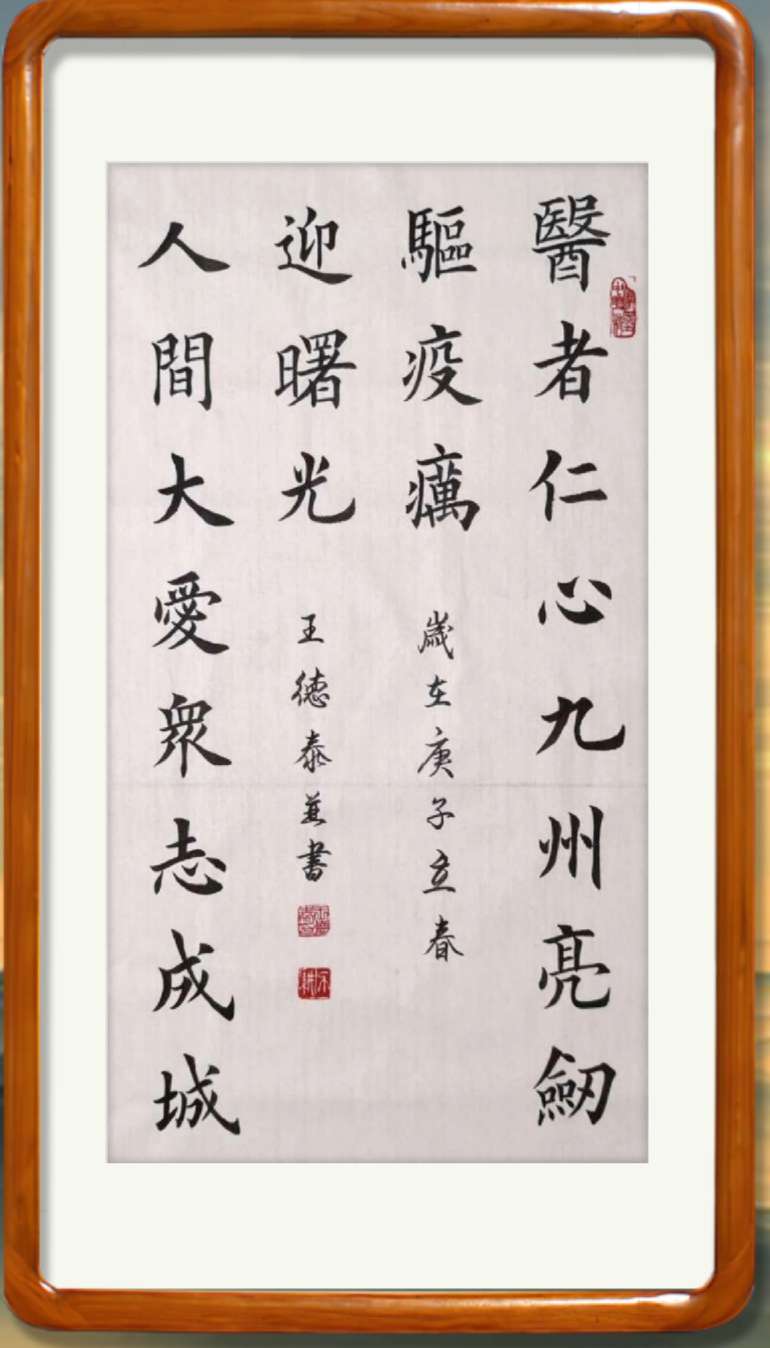 醫者仁心九州亮劔
驅疫癘
歲在庚子立春
人間大愛衆志成城
迎曙光
王德泰並書